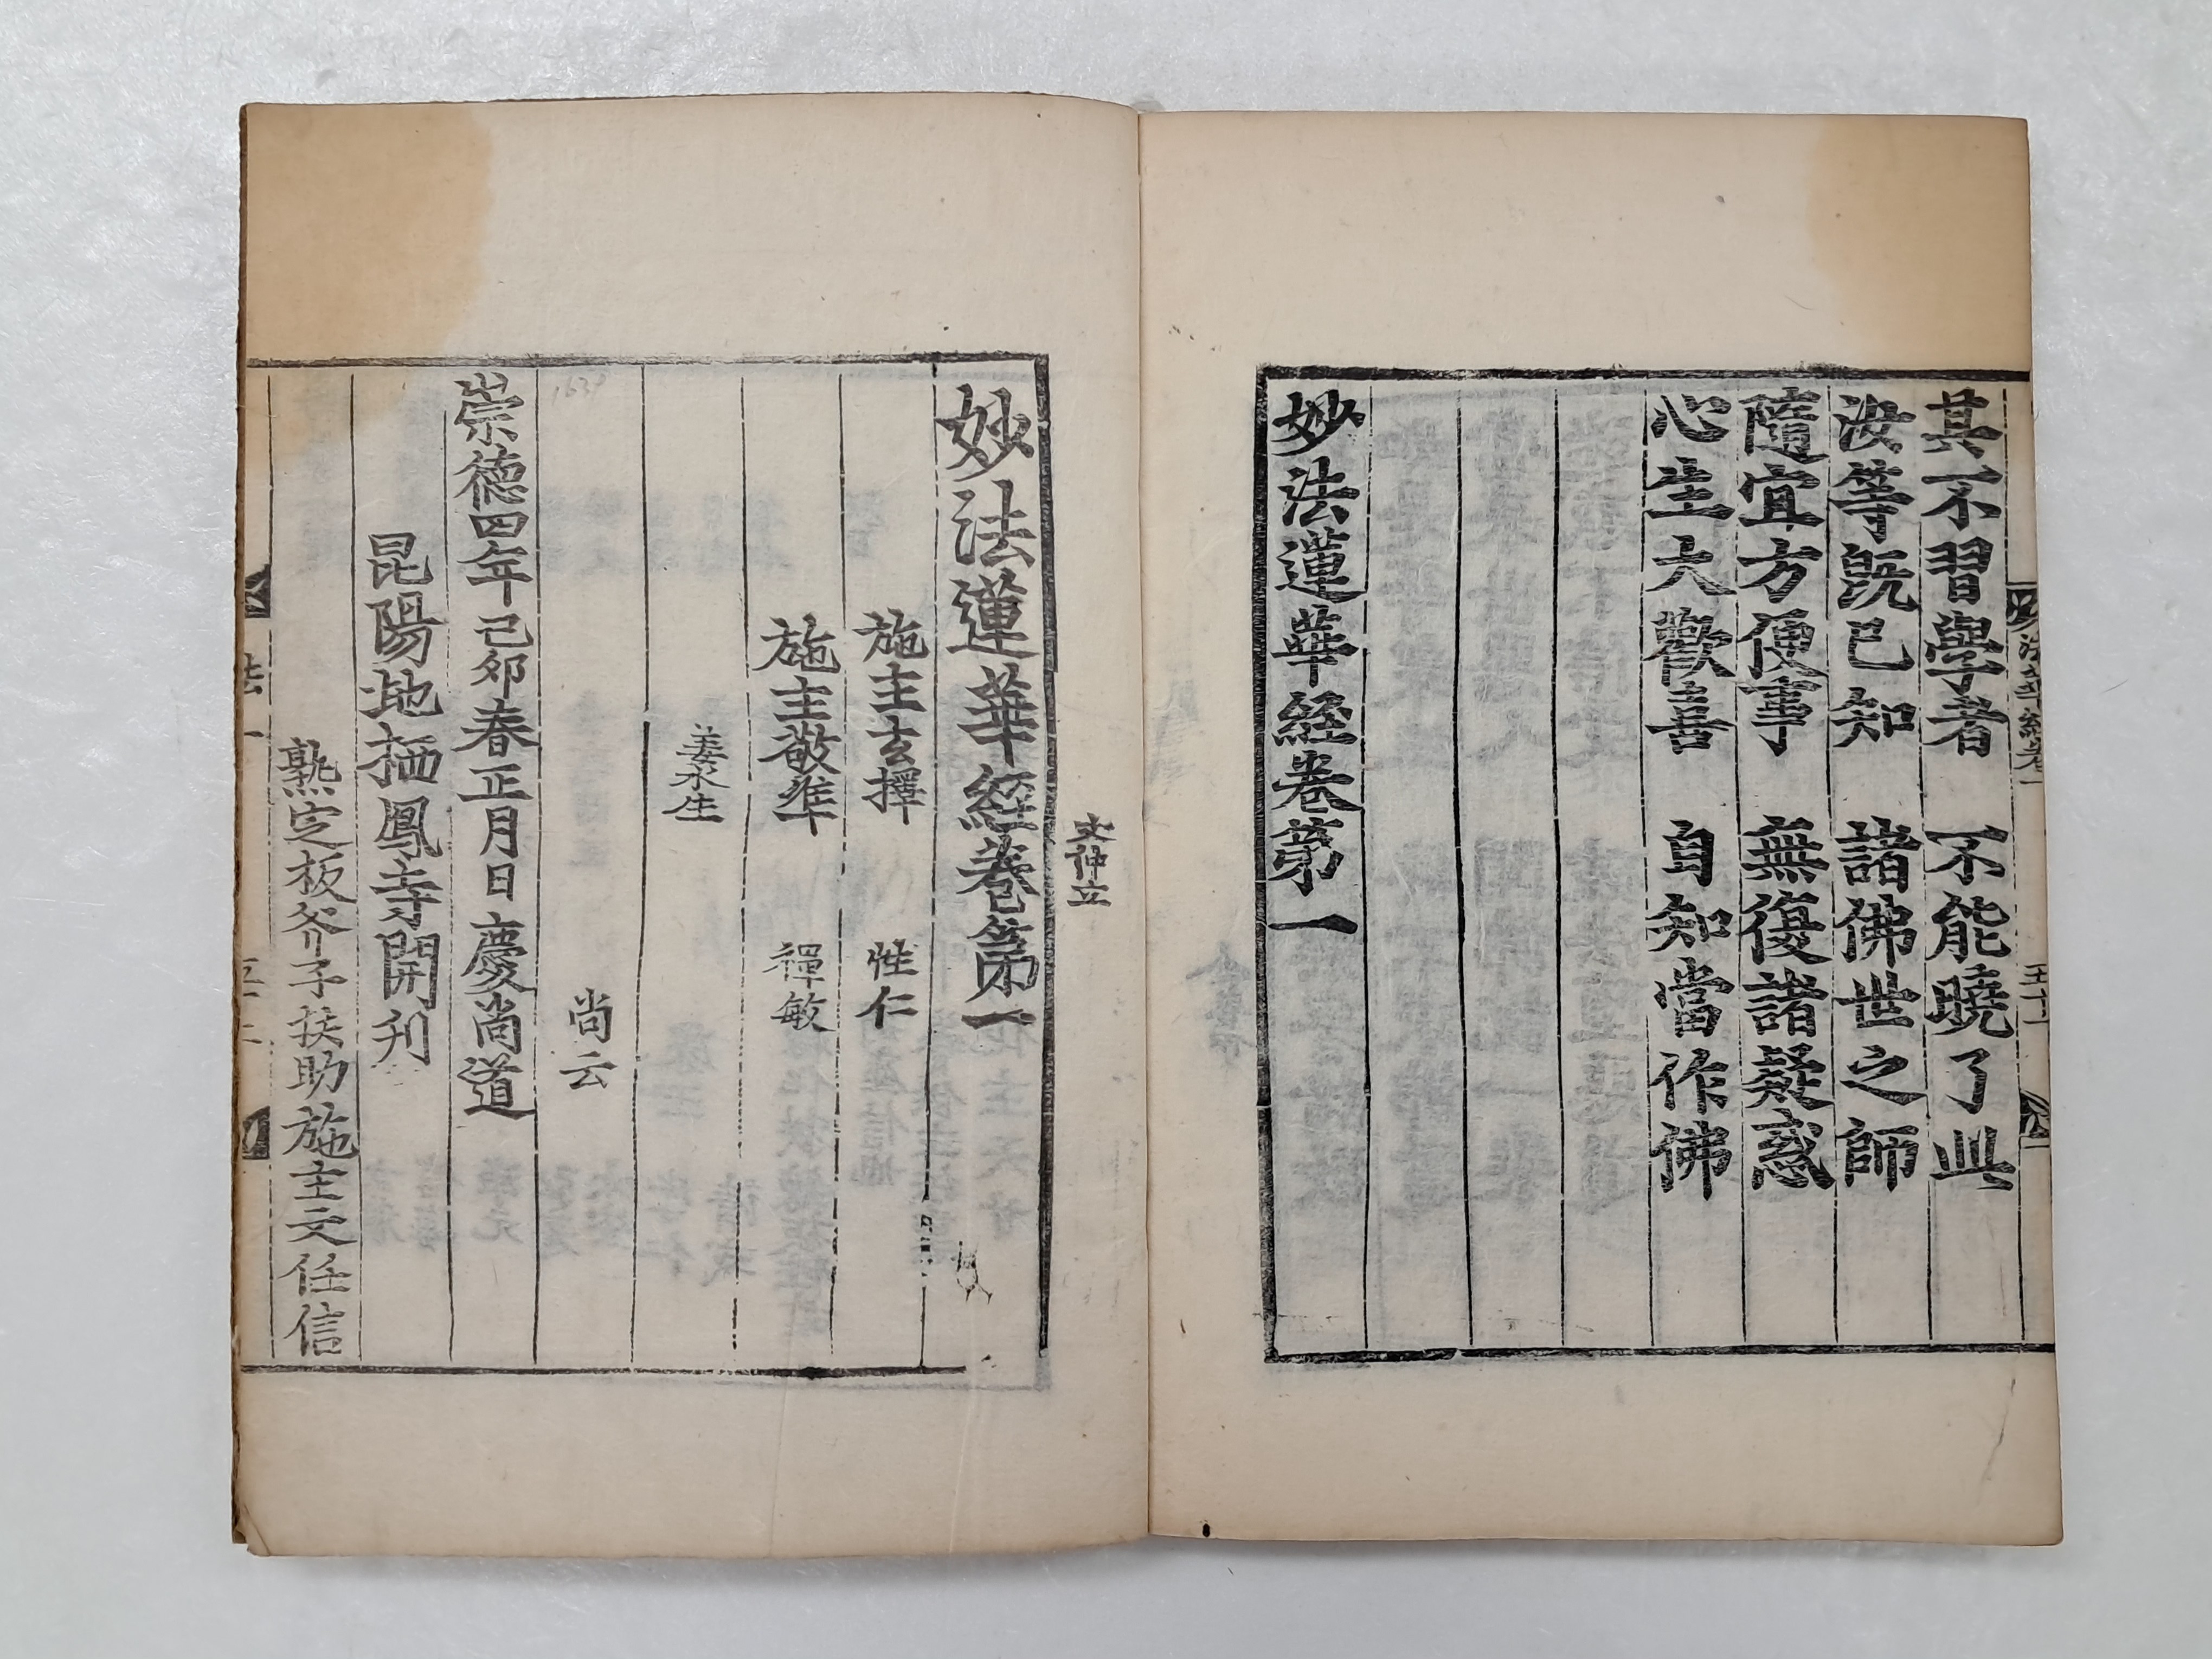 其不習學者 不能曉了此
汝等既已知 諸佛世之師
隨宜方便事 無復諸疑惑
心生大歡喜 自知當作佛
妙法蓮華經卷第一
妙法蓮華經卷第一
施主玄擇 性仁
施主敬準 禪敏
姜水生
尚云
崇德四年己卯春正月日慶尚道
昆陽地栖鳳寺開刊
熟定板斧子扶助施主文任信